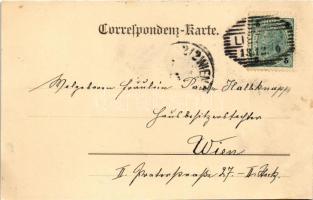 Correspondenz-Karte.
2/2 WIEN
Wolgeboren Fräulein Halbknapp
Hausbesitzerstochter
Wien
II. Praterstraße 27. – II. Stock